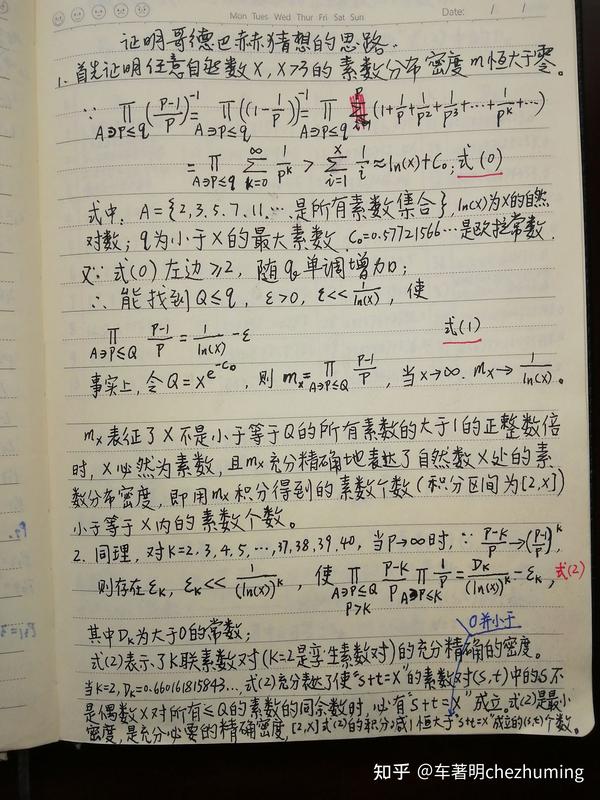 Mon Tues Wed Thur Fri Sat Sun
Date: / /
证明哥德巴赫猜想的思路.
1. 首先证明任意自然数X, X>3的素数分布密度m恒大于零。
∵ ∏_{A∋P≤q} (P-1/P)^{-1} = ∏_{A∋P≤q} ((1-1/P))^{-1} = ∏_{A∋P≤q} (1+1/P+1/P²+1/P³+…+1/P^K+…)
= ∏_{A∋P≤q} ∑_{K=0}^{∞} 1/P^K > ∑_{i=1}^{X} 1/i ≈ ln(X)+C₀; 式(0)
式中, A={2,3,5,7,11,…是所有素数集合}, ln(X)为X的自然
对数; q为小于X的最大素数, C₀=0.57721566…是欧拉常数.
又∵ 式(0)左边≥2, 随q单调增加;
∴ 能找到Q≤q, ε>0, ε<<1/ln(X), 使
∏_{A∋P≤Q} P-1/P = 1/ln(X) -ε 式(1)
事实上, 令Q=X^{e^{-C₀}}, 则 m_X=∏_{A∋P≤Q} P-1/P, 当X→∞. m_X→1/ln(X)。
m_X表征了X不是小于等于Q的所有素数的大于1的正整数倍
时, X必然为素数, 且m_X充分精确地表达了自然数X处的素
数分布密度, 即用m_X积分得到的素数个数(积分区间为[2,X])
小于等于X内的素数个数。
2. 同理, 对K=2,3,4,5,…,37,38,39,40, 当P→∞时, ∵ P-K/P→(P-1/P)^K
则存在ε_K, ε_K<<1/(ln(X))^K, 使 ∏_{A∋P≤Q, P>K} P-K/P ∏_{A∋P≤K} 1/P = D_K/(ln(X))^K -ε_K, 式(2)
其中D_K为大于0的常数; 0并小于
式(2)表示了K联素数对(K=2是孪生素数对)的充分精确的密度。
当K=2, D_K=0.660161815843…, 式(2)充分表达了使"s+t=X"的素数对(s,t)中的s不
是偶数X对所有≤Q的素数的同余数时, 必有"s+t=X"成立。式(2)是最小
密度, 是充分必要的精确密度, [2,X]式(2)的积分减1恒大于"s+t=X"成立的(s,t)个数。
知乎 @车著明chezhuming